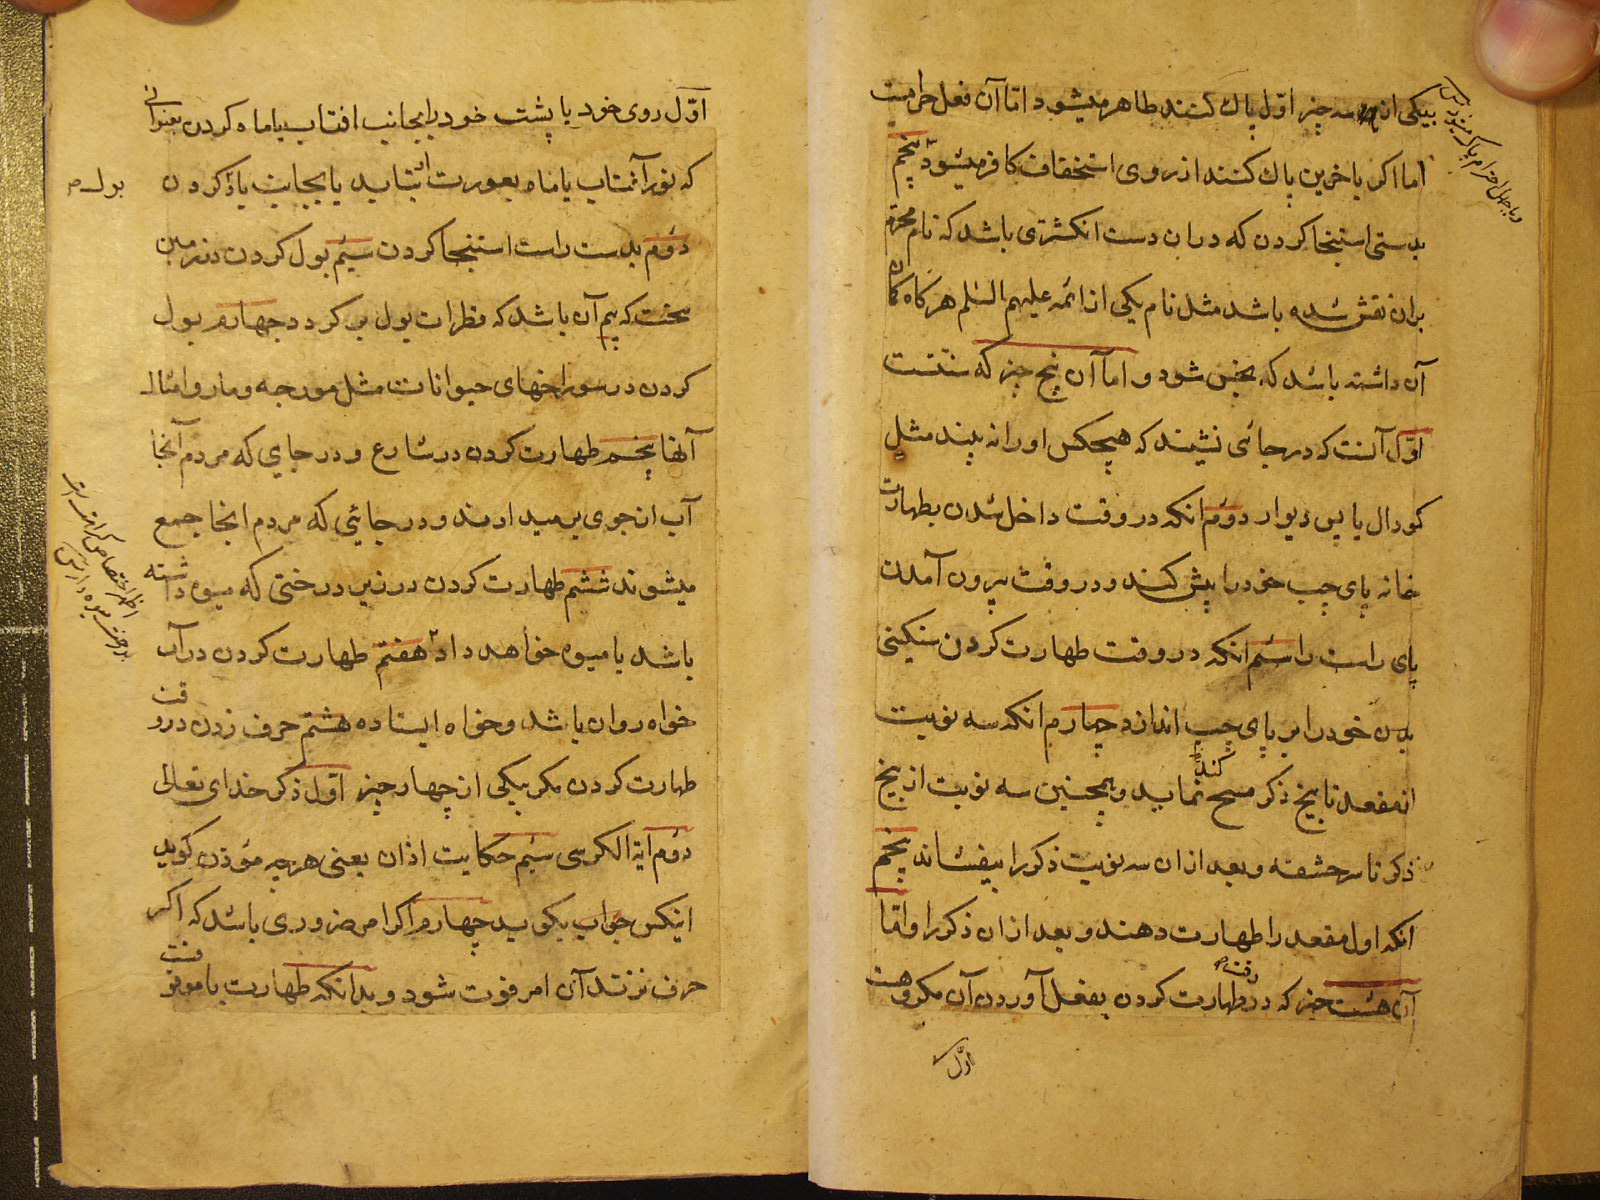 بیکی از سه چیز اول پاک کنند طاهر میشود اما آن فعل حرامیت
اما اکر باخرین پاک کنند از روی استخفاف کافر میشود پنجم
بدستی استنجا کردن که دران دست انکشتری باشد که نام محترم
بران نقش شده باشد مثل نام یکی از ائمه علیهم السلم هرکاه کمان
آن داشته باشد که نجس شود و اما آن پنج چیز که سنتست
اول آنست که در جائی نشیند که هیچکس او را نه بیند مثل
کودال یا پس دیوار دوم انکه در وقت داخل شدن بطهارت
خانه پای چپ خود را پیش کند و در وقت بیرون آمدن
پای راست را سیم انکه در وقت طهارت کردن سنکینی
بدن خود را بر پای چپ اندازد چهارم انکه سه نوبت
از مقعد تا بیخ ذکر مسح نماید و همچنین سه نوبت از بیخ
کند
ذکر تا سر حشفه و بعد ازان سه نوبت ذکر را بیفشاند پنجم
انکه اول مقعد را طهارت دهند و بعد ازان ذکر را و اما
آن هشت چیز که در وقت طهارت کردن بفعل آوردن آن مکروهست
اول
اول روی خود یا پشت خود را بجانب افتاب یا ماه کردن بعنوانی
که نور آفتاب یا ماه بعورت او بتابد یا بجانب باد کردن
بول
دوم بدست راست استنجا کردن سیم بول کردن در زمین
سخت که بیم آن باشد که قطرات بول بر کردد چهارم بول
کردن در سوراخهای حیوانات مثل مورچه و مار و امثال
آنها پنجم طهارت کردن در شارع و در جایی که مردم آنجا
آب از جوی بر میدارند و در جائی که مردم انجا جمع
میشوند ششم طهارت کردن در زیر درختی که میوه داشته
باشد یا میوه خواهد داد هفتم طهارت کردن در آب
خواه روان باشد و خواه ایستاده هشتم حرف زدن در وقت
طهارت کردن مکر بیکی از چهار چیز اول ذکر خدای تعالی
دوم آیة الکرسی سیم حکایت اذان یعنی هر چه مؤذن کوید
اینکس جواب بکوید چهارم اکر امر ضروری باشد که اکر
حرف نزند آن امر فوت شود و بدانکه طهارت یا موقوفست